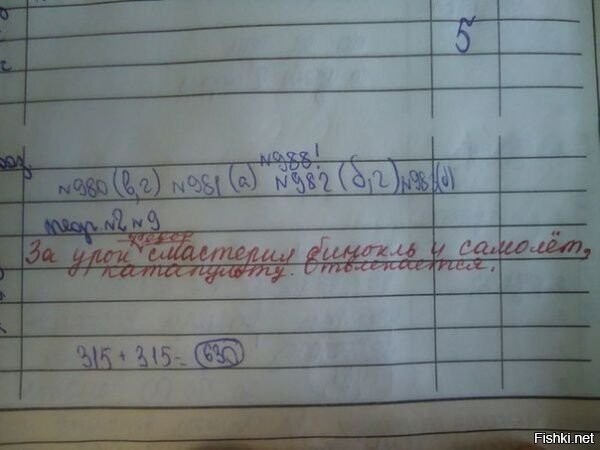 5
№988!
№980 (в,г) №981 (а) №982 (б,г)
№2 №9
За урок смастерил бинокль и самолёт,
катапульту. Отвлекается.
315 + 315 = 630
Fishki.net